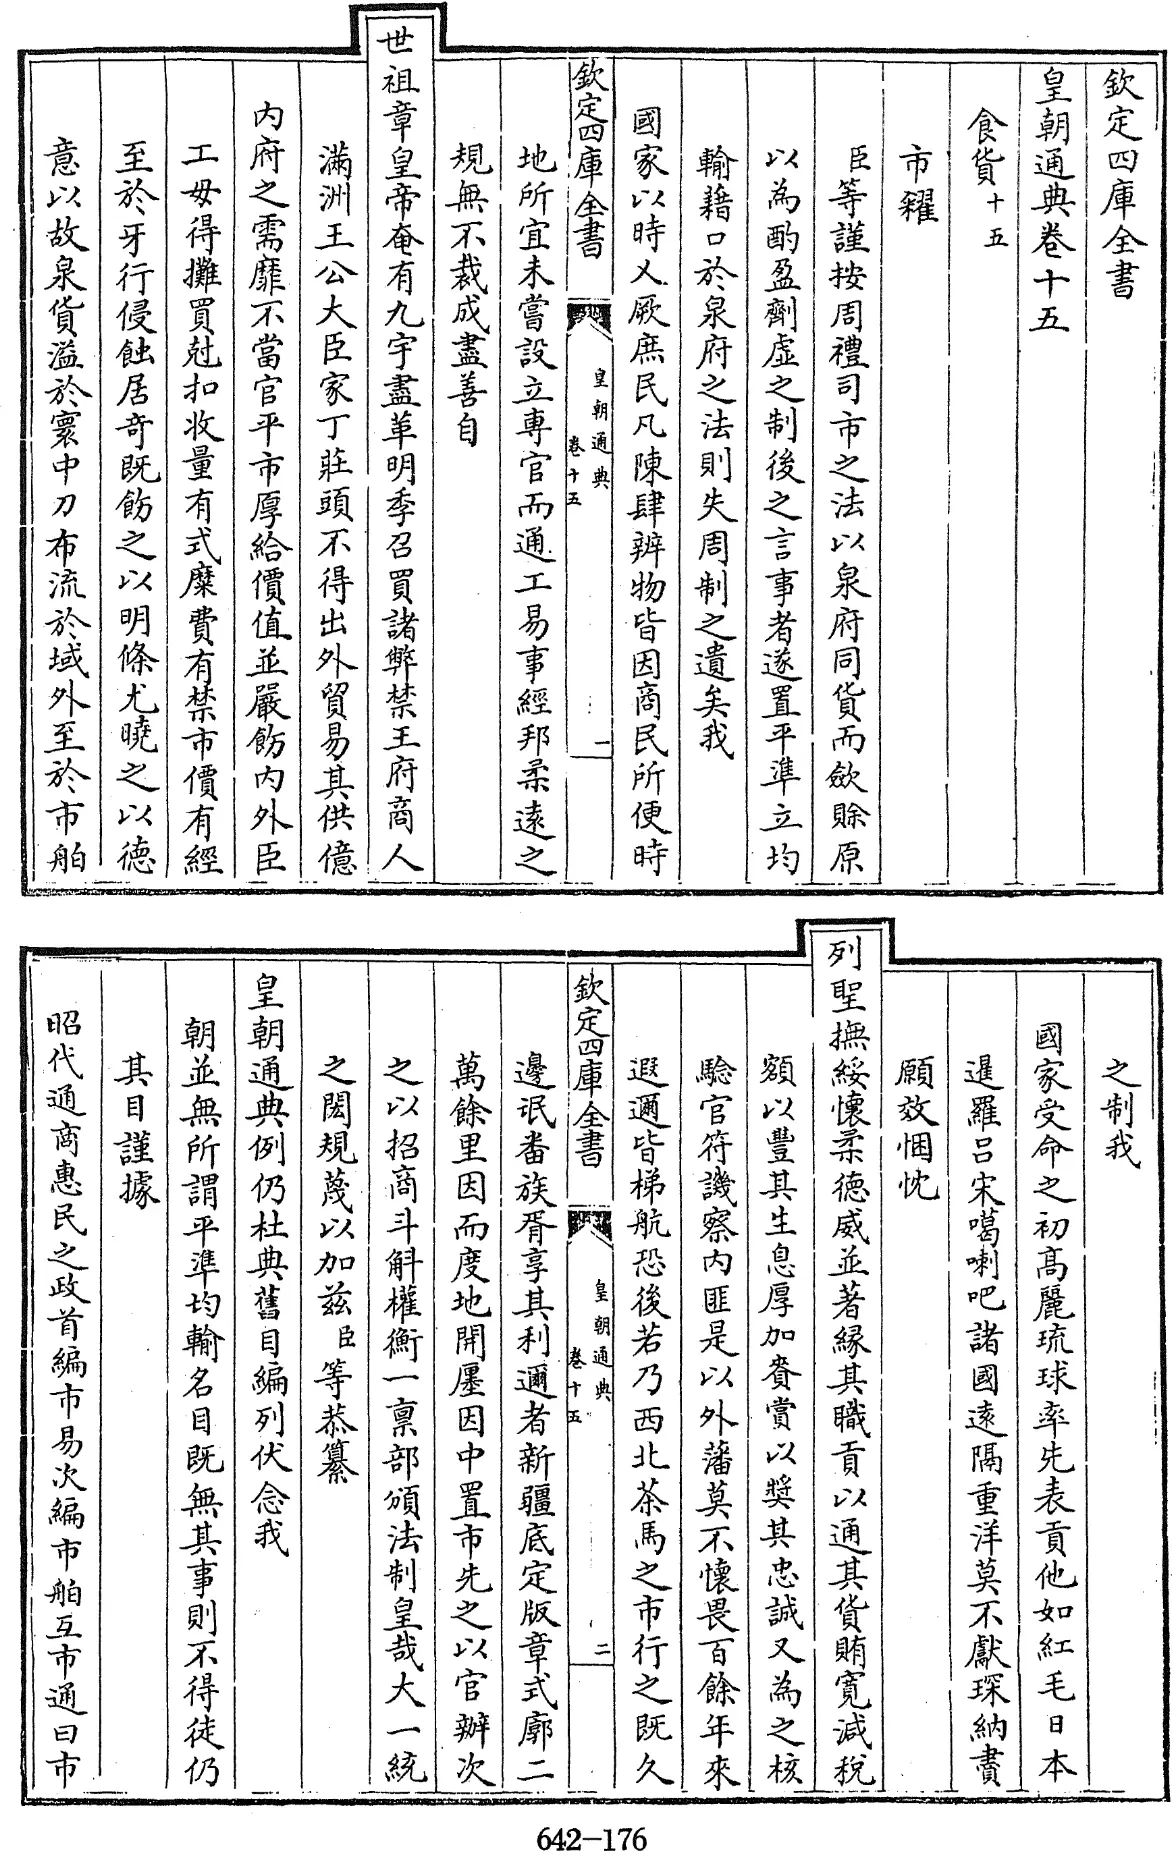 欽定四庫全書
皇朝通典卷十五
食貨十五
市糴
臣等謹按周禮司市之法以泉府同貨而歛賒原
以為酌盈劑虛之制後之言事者遂置平準立均
輸藉口於泉府之法則失周制之遺矣我
國家以時乂厥庶民凡陳肆辨物皆因商民所便時
欽定四庫全書
皇朝通典
卷十五
一
地所宜未嘗設立專官而通工易事經邦柔遠之
規無不裁成盡善自
世祖章皇帝奄有九宇盡革明季召買諸弊禁王府商人
滿洲王公大臣家丁莊頭不得出外貿易其供億
内府之需靡不當官平市厚給價值並嚴飭内外臣
工毋得攤買尅扣收量有式糜費有禁市價有經
至於牙行侵蝕居奇既飭之以明條尤曉之以德
意以故泉貨溢於寰中刀布流於域外至於市舶
之制我
國家受命之初高麗琉球率先表貢他如紅毛日本
暹羅呂宋噶喇吧諸國遠隔重洋莫不獻琛納賮
願效悃忱
列聖撫綏懷柔德威並著緣其職貢以通其貨賄寬減稅
額以豐其生息厚加賚賞以奬其忠誠又為之核
驗官符譏察内匪是以外藩莫不懷畏百餘年來
遐邇皆梯航恐後若乃西北茶馬之市行之既久
欽定四庫全書
皇朝通典
卷十五
二
邊氓番族胥享其利邇者新疆底定版章式廓二
萬餘里因而度地開廛因中置市先之以官辦次
之以招商斗斛權衡一稟部頒法制皇哉大一統
之閎規蔑以加兹臣等恭纂
皇朝通典例仍杜典舊目編列伏念我
朝並無所謂平準均輸名目既無其事則不得徒仍
其目謹據
昭代通商惠民之政首編市易次編市舶互市通曰市
642-176